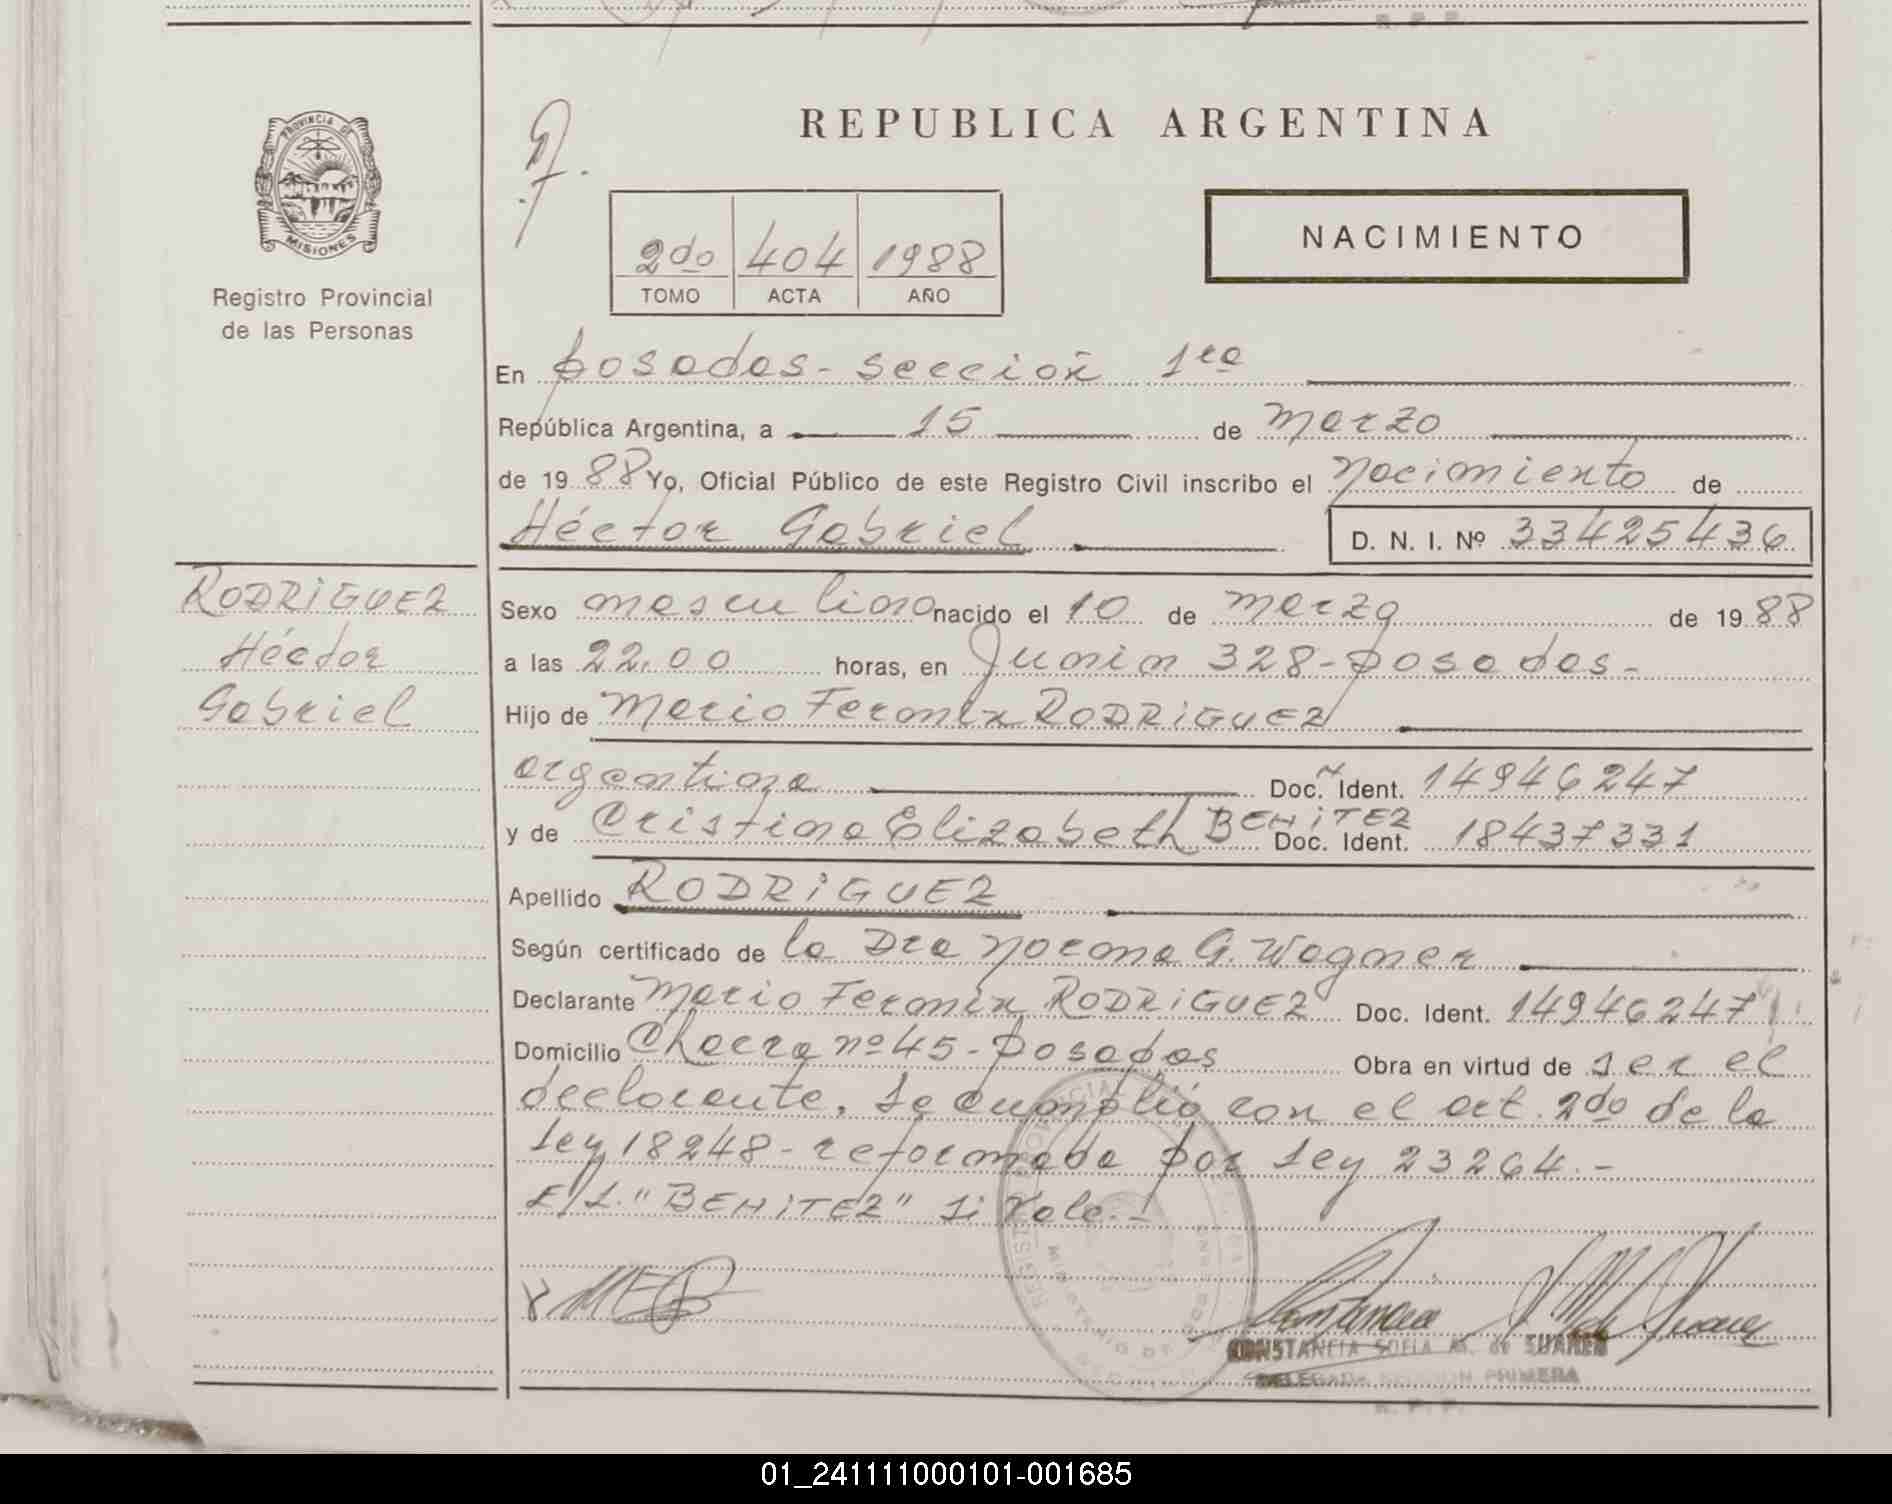 REPUBLICA ARGENTINA
PROVINCIA DE
MISIONES
Registro Provincial
de las Personas
2do 404 1988
TOMO ACTA AÑO
NACIMIENTO
En posadas - sección 1ra
República Argentina, a 15 de Marzo
de 19 88 Yo, Oficial Público de este Registro Civil inscribo el Nacimiento de
Héctor Gabriel D. N. I. Nº 33425436
RODRiGUEZ
Héctor
Gabriel
Sexo masculino nacido el 10 de Marzo de 19 88
a las 22.00 horas, en Junin 328 - posadas -
Hijo de Mario Fermín RODRiGUEZ
argentino Doc. Ident. 14946247
y de Cristina Elizabeth BENiTEZ Doc. Ident. 18437331
Apellido RODRiGUEZ
Según certificado de la Dra Norma G. Wagner
Declarante Mario Fermín RODRiGUEZ Doc. Ident. 14946247
Domicilio Chacra nº 45 - posadas Obra en virtud de ser el
declarante. Se cumplió con el art. 2do de la
Ley 18248 - reformada por Ley 23264. -
E/L. "BENiTEZ" Si Vale. -
CONSTANCIA SOFIA M. de SUAREZ
DELEGADA SECCION PRIMERA
R. P. P.
01_241111000101-001685